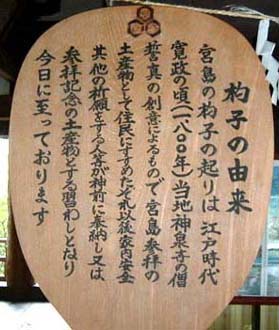 杓子の由来
宮島の杓子の起りは江戸時代
寛政の頃(一八〇〇年)当地神泉寺の僧
誓真の創意によるもので宮島参拝の
土産物として住民にすすめたが札以後家内安全
其他の祈願をする人等が神前に奉納し又は
参拝記念の土産物とする習わしとなり
今日に至っております